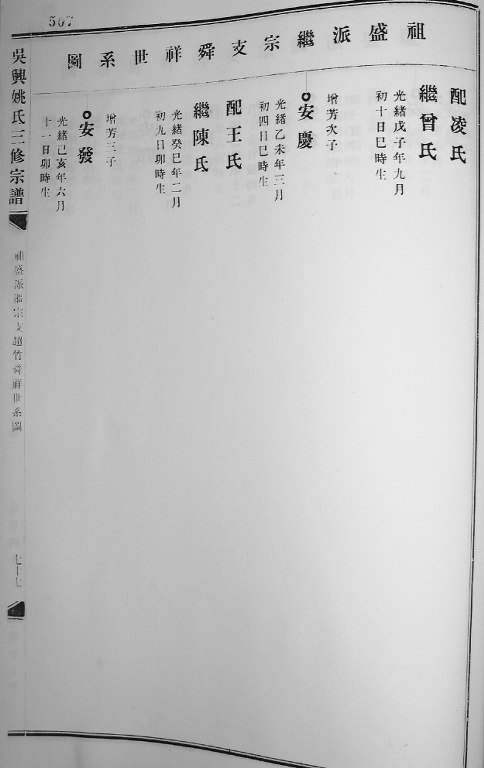 507
祖盛派繼宗支舜祥世系圖
配凌氏
繼曾氏
光緒戊子年九月
初十日巳時生
增芳次子
安慶
光緒乙未年三月
初四日巳時生
配王氏
繼陳氏
光緒癸巳年二月
初九日卯時生
增芳三子
安發
光緒己亥年六月
十一日卯時生
吳興姚氏三修宗譜
祖盛派繼宗支 竹舜祥世系圖
七十七